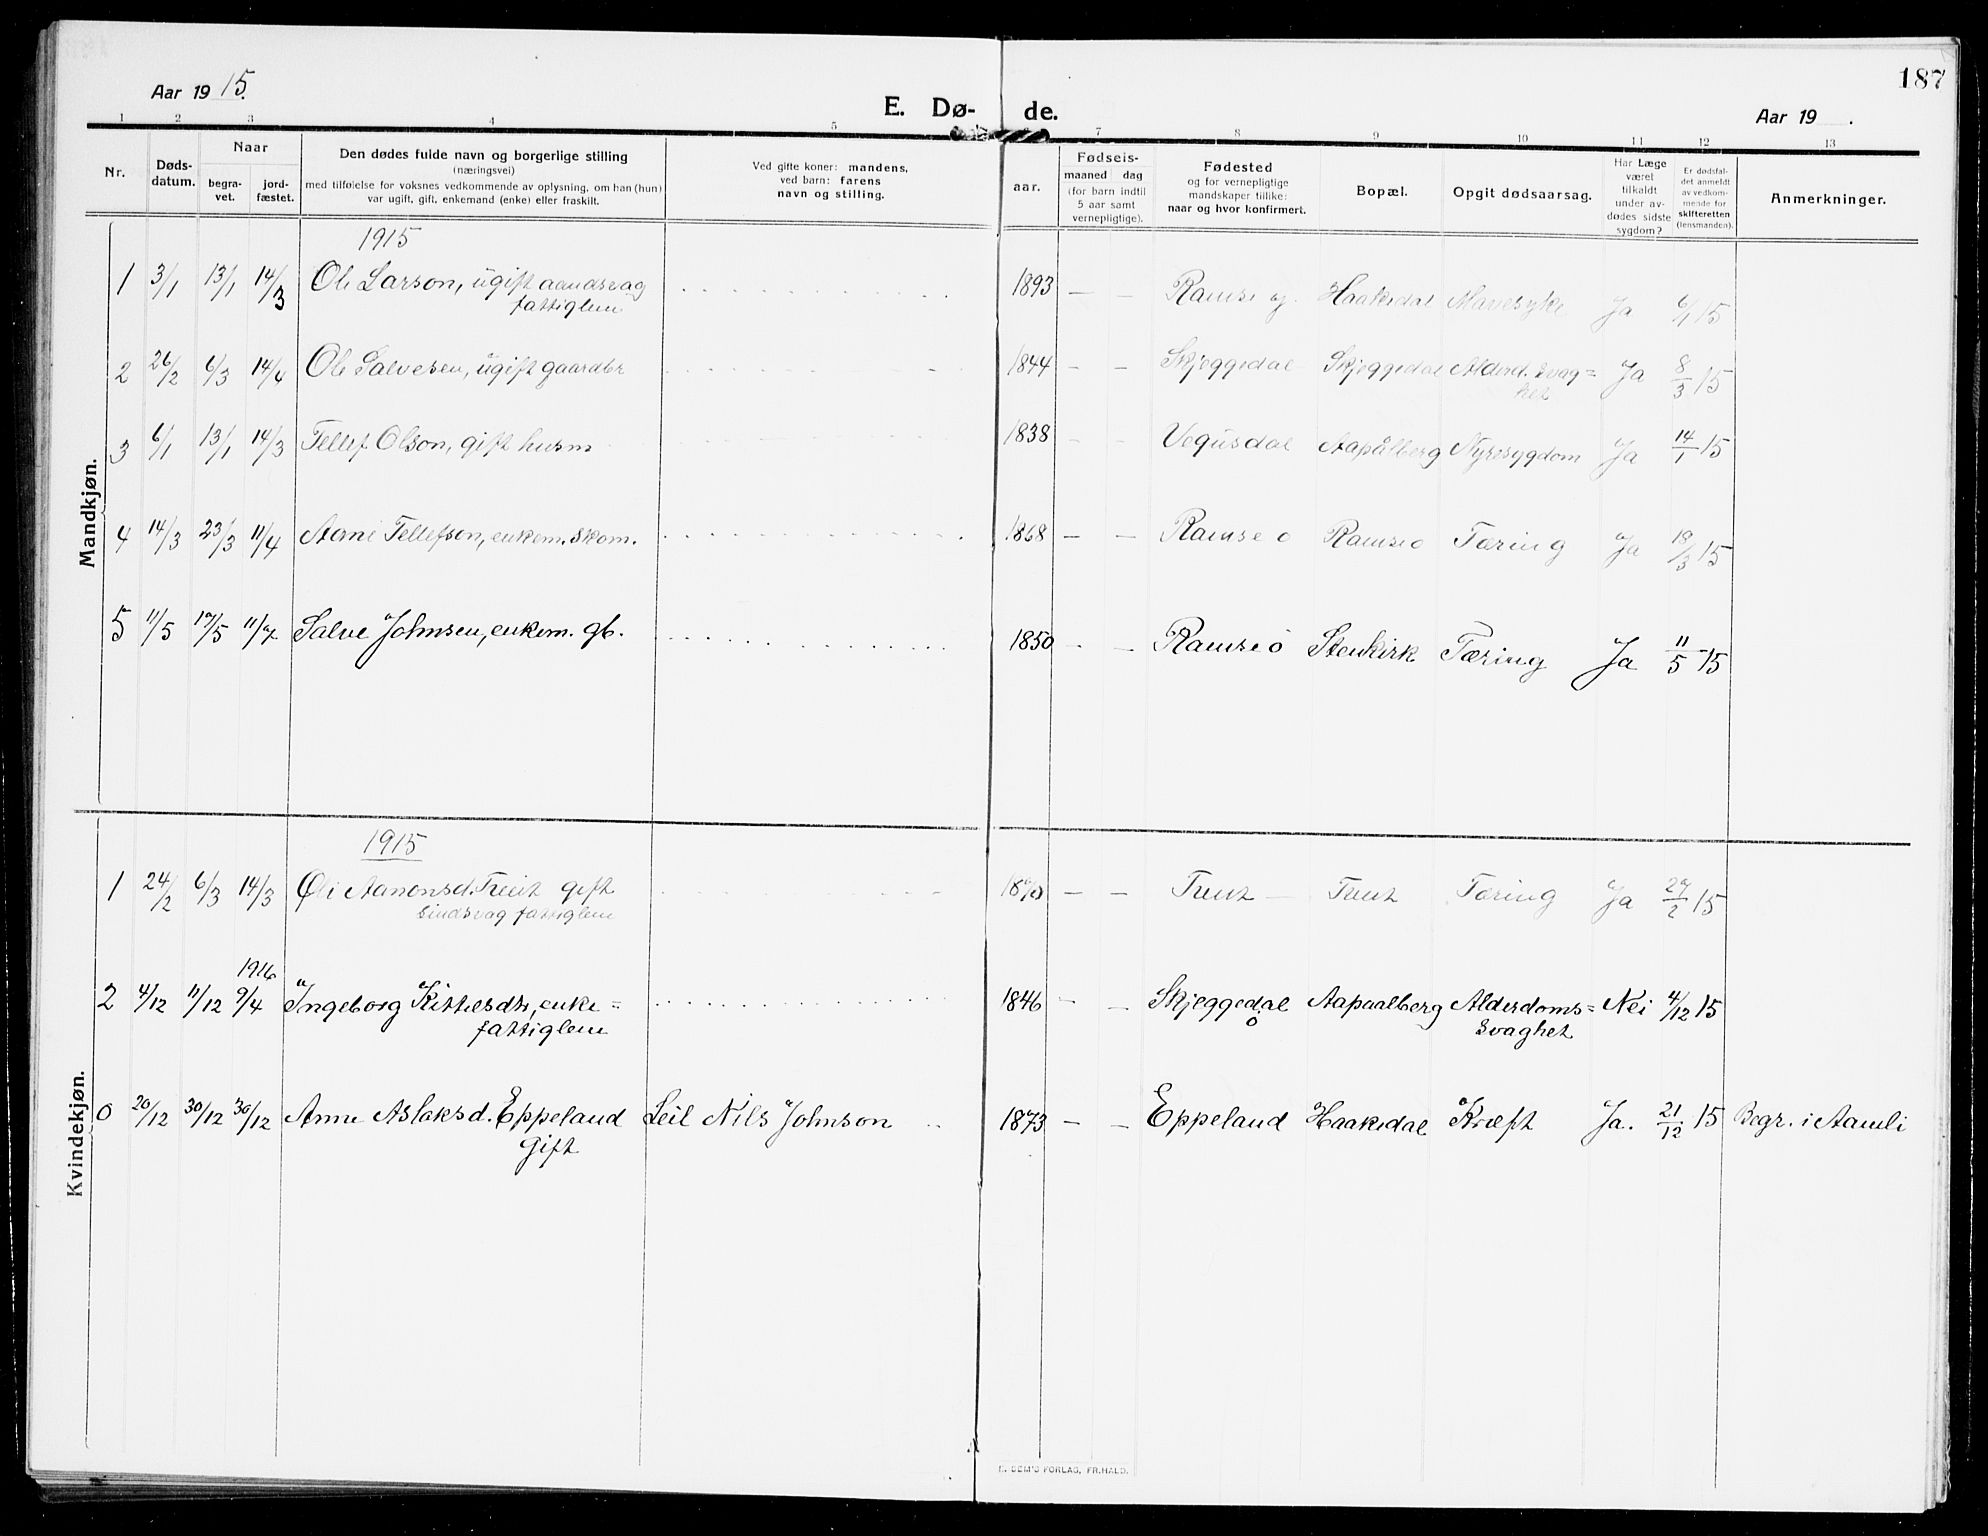 187
Aar 19 15.
E. Dø- de.
Aar 19 .
1 2 3 4 5 7 8 9 10 11 12 13
Nr.
Døds-
datum.
Naar
begra-
vet.
jord-
fæstet.
Den dødes fulde navn og borgerlige stilling
(næringsvei)
med tilføielse for voksnes vedkommende av oplysning, om han (hun)
var ugift, gift, enkemand (enke) eller fraskilt.
Ved gifte koner: mandens,
ved barn: farens
navn og stilling.
aar.
Fødsels-
maaned dag
(for barn indtil
5 aar samt
vernepligtige).
Fødested
og for vernepligtige
mandskaper tillike:
naar og hvor konfirmert.
Bopæl.
Opgit dødsaarsag.
Har Læge
været
tilkaldt
under av-
dødes sidste
sygdom?
Er dødsfal-
det anmeldt
av vedkom-
mende for
skifteretten
(lensmanden).
Anmerkninger.
Mandkjøn.
1915
1 3/1 13/1 14/3 Ole Larson, ugift aandsvag 1893 — — Ramse Haakedal Mavesyke Ja 6/1 15
fattiglem
2 26/2 6/3 14/4 Ole Salvesen, ugift gaardbr 1844 - - Skjeggedal Skjeggedal Alderd. svag=
het Ja 8/3 15
3 6/1 13/1 14/3 Tellef Olson, gift husm 1838 - - Vegusdal Aapålberg Nyresygdom Ja 14/1 15
4 14/3 23/3 11/4 Aane Tellefson, enkem. skom. 1868 — — Ramse ø Ramse ø Tæring Ja 19/3 15
5 11/5 17/5 11/7 Salve Johnsen, enkem. gb. 1850 - — Ramse ø Stenkirk Tæring Ja 11/5 15
Kvindekjøn.
1915
1 24/2 6/3 14/3 Øli Aanonsd. Treit gift 1870 — — Treit Treit Tæring Ja 27/2 15
sindsvag fattiglem
1916
2 4/12 11/12 9/4 Ingeborg Kittelsdtr, enke = 1846 — — Skjeggedal Aapaalberg Alderdoms= Nei 4/12 15
fattiglem ø svaghet
0 20/12 30/12 30/12 Anne Aslaksd. Eppeland Leil Nils Johnson 1873 — — Eppeland Haakedal Kræft Ja. 21/12 15 Begr. i Aamli
Gift
E. SEM'S FORLAG, FR.HALD.